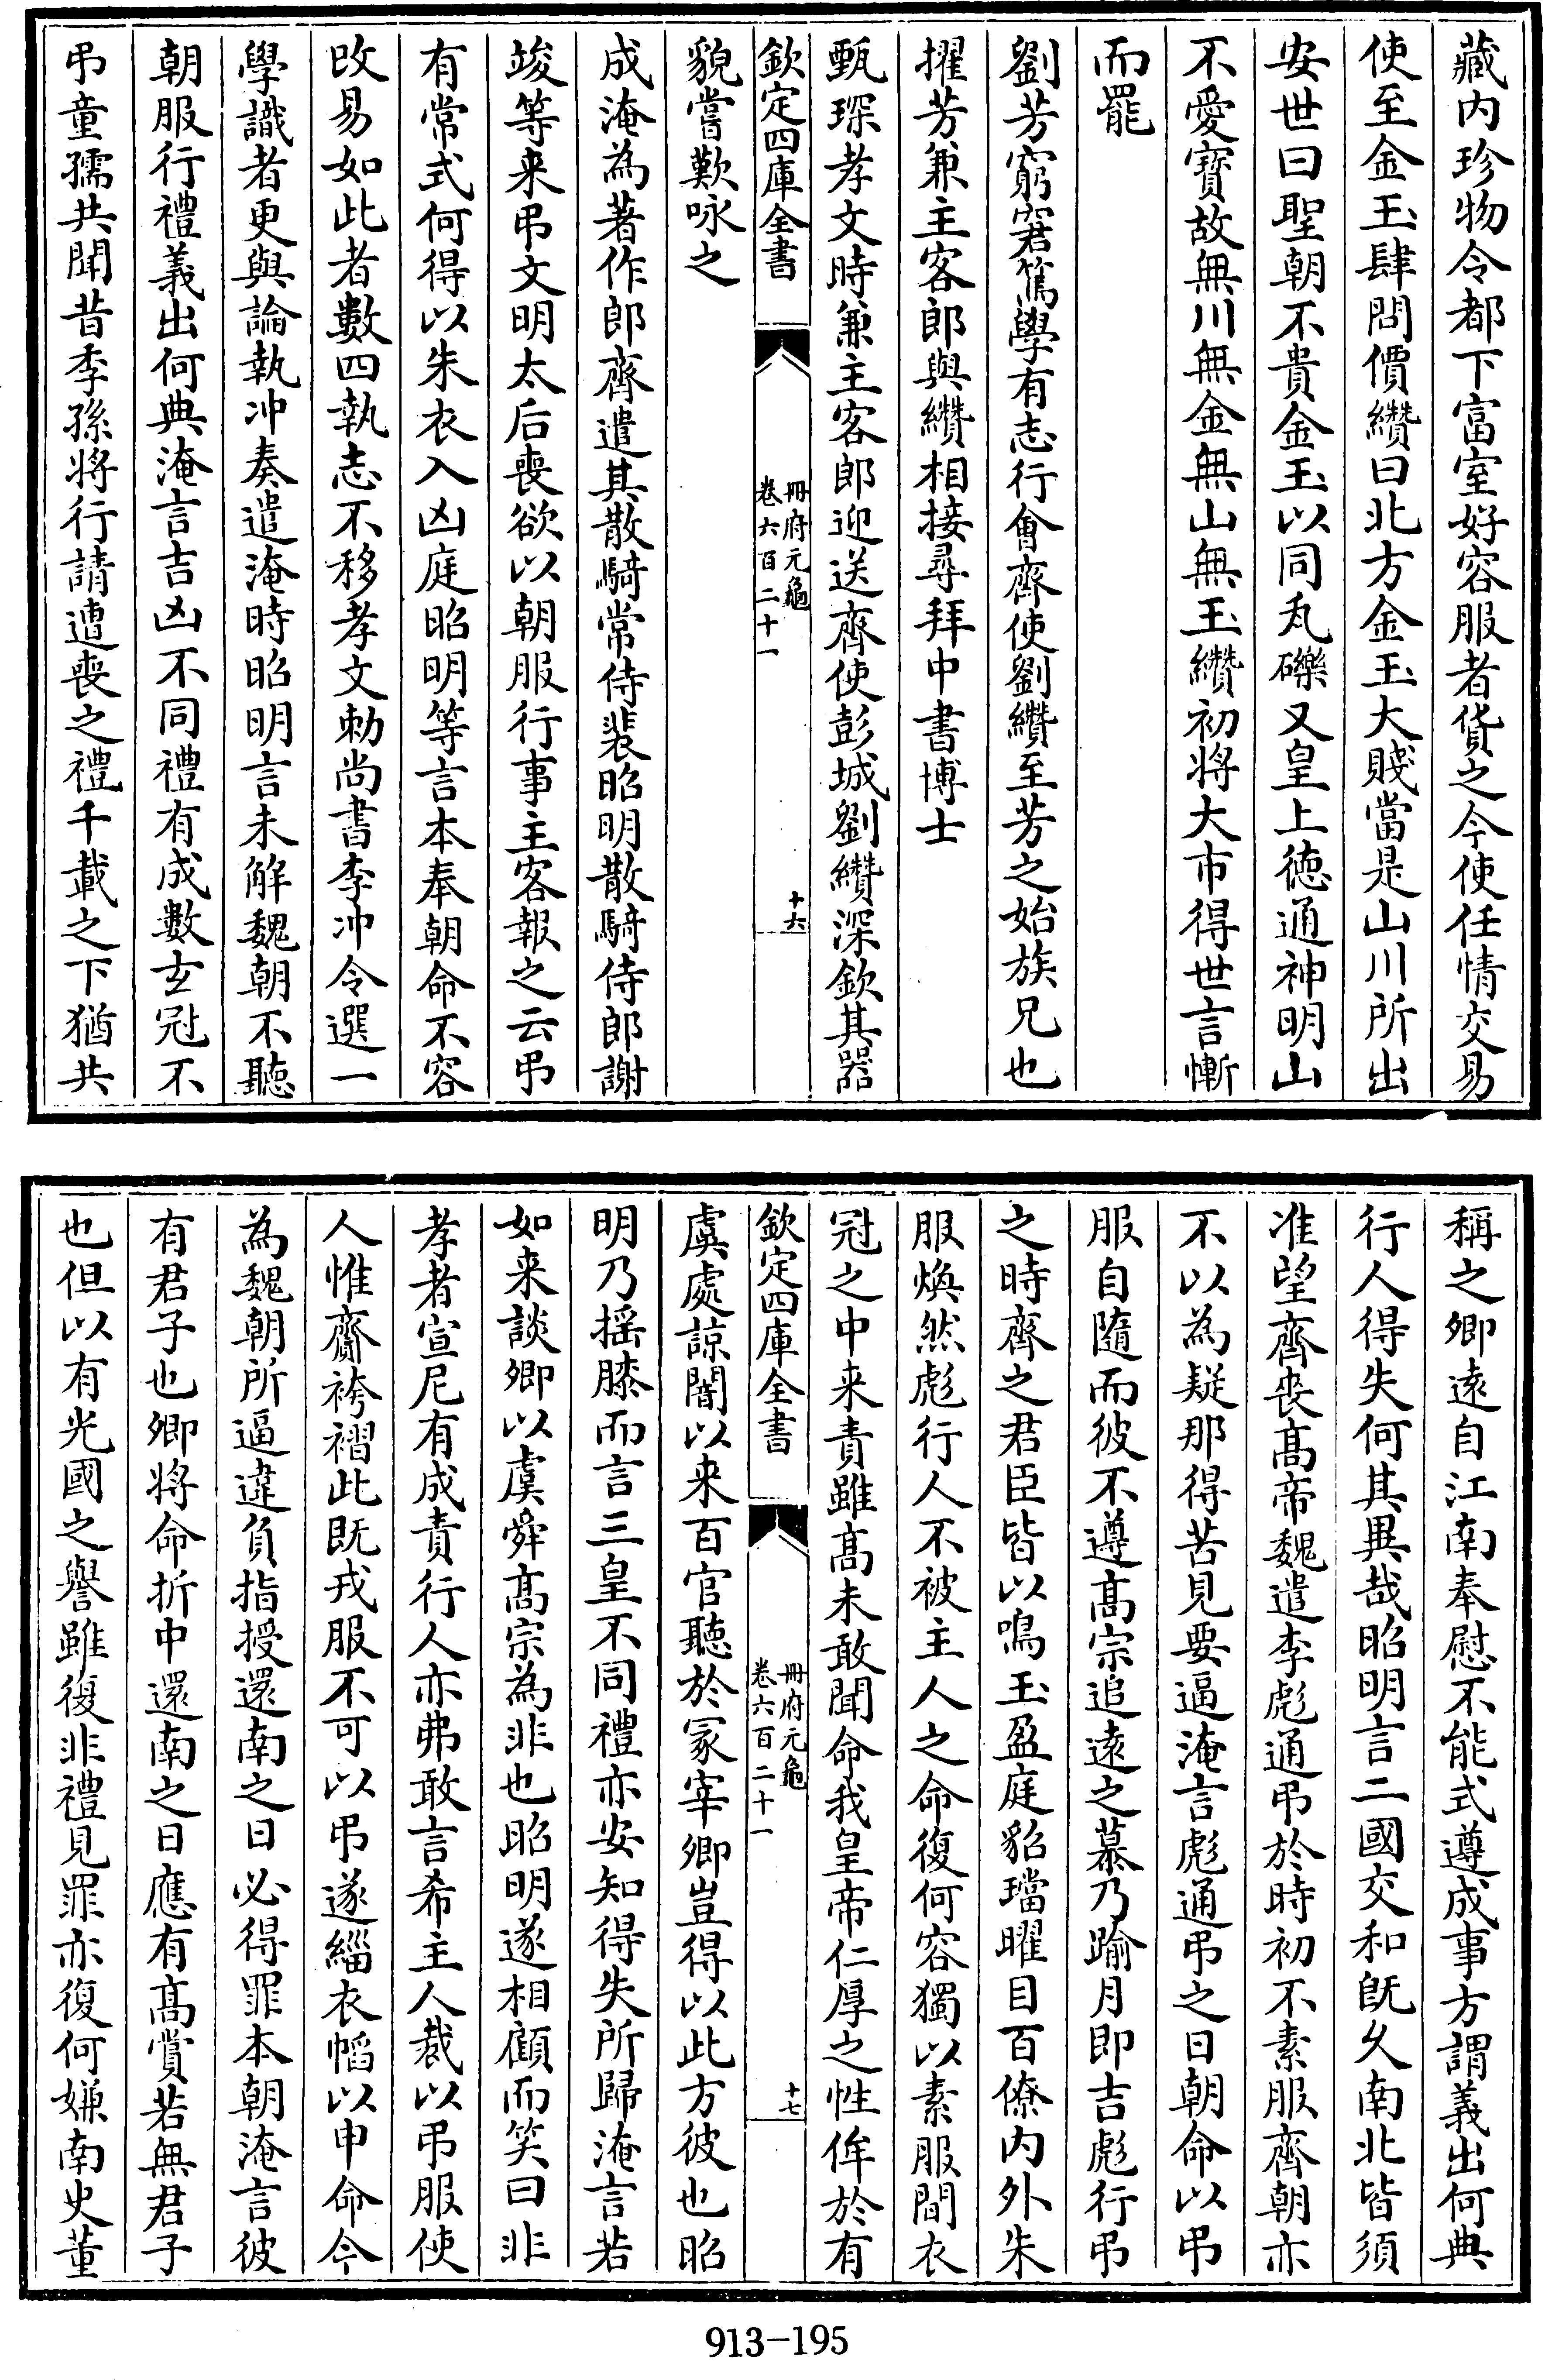 藏内珍物令都下富室好容服者貨之令使任情交易
使至金玉肆問價纘曰北方金玉大賤當是山川所出
安世曰聖朝不貴金玉以同瓦礫又皇上德通神明山
不愛寳故無川無金無山無玉纘初將大市得世言慚
而罷
劉芳窮窘篤學有志行會齊使劉纘至芳之始族兄也
擢芳兼主客郎與纘相接尋拜中書博士
甄琛孝文時兼主客郎迎送齊使彭城劉纘深欽其器
欽定四庫全書
冊府元龜
卷六百二十一
十六
貌嘗歎咏之
成淹為著作郎齊遣其散騎常侍裴昭明散騎侍郎謝
竣等来弔文明太后喪欲以朝服行事主客報之云弔
有常式何得以朱衣入凶庭昭明等言本奉朝命不容
改易如此者數四執志不移孝文勅尚書李冲令選一
學識者更與論執冲奏遣淹時昭明言未解魏朝不聽
朝服行禮義出何典淹言吉凶不同禮有成數玄冠不
弔童孺共聞昔季孫將行請遭喪之禮千載之下猶共
稱之卿逺自江南奉慰不能式遵成事方謂義出何典
行人得失何其異哉昭明言二國交和既久南北皆須
准望齊喪髙帝魏遣李彪通弔於時初不素服齊朝亦
不以為疑那得苦見要逼淹言彪通弔之日朝命以弔
服自隨而彼不遵髙宗追逺之慕乃踰月即吉彪行弔
之時齊之君臣皆以鳴玉盈庭貂璫曜目百僚内外朱
服煥然彪行人不被主人之命復何容獨以素服間衣
冠之中来責雖髙未敢聞命我皇帝仁厚之性侔於有
欽定四庫全書
冊府元龜
卷六百二十一
十七
虞處諒闇以来百官聽於冢宰卿豈得以此方彼也昭
明乃摇膝而言三皇不同禮亦安知得失所歸淹言若
如来談卿以虞舜髙宗為非也昭明遂相顧而笑曰非
孝者宣尼有成責行人亦弗敢言希主人裁以弔服使
人惟齎袴褶此既戎服不可以弔遂緇衣㡊以申命今
為魏朝所逼違負指授還南之日必得罪本朝淹言彼
有君子也卿將命折中還南之日應有髙賞若無君子
也但以有光國之譽雖復非禮見罪亦復何嫌南史董
913-195